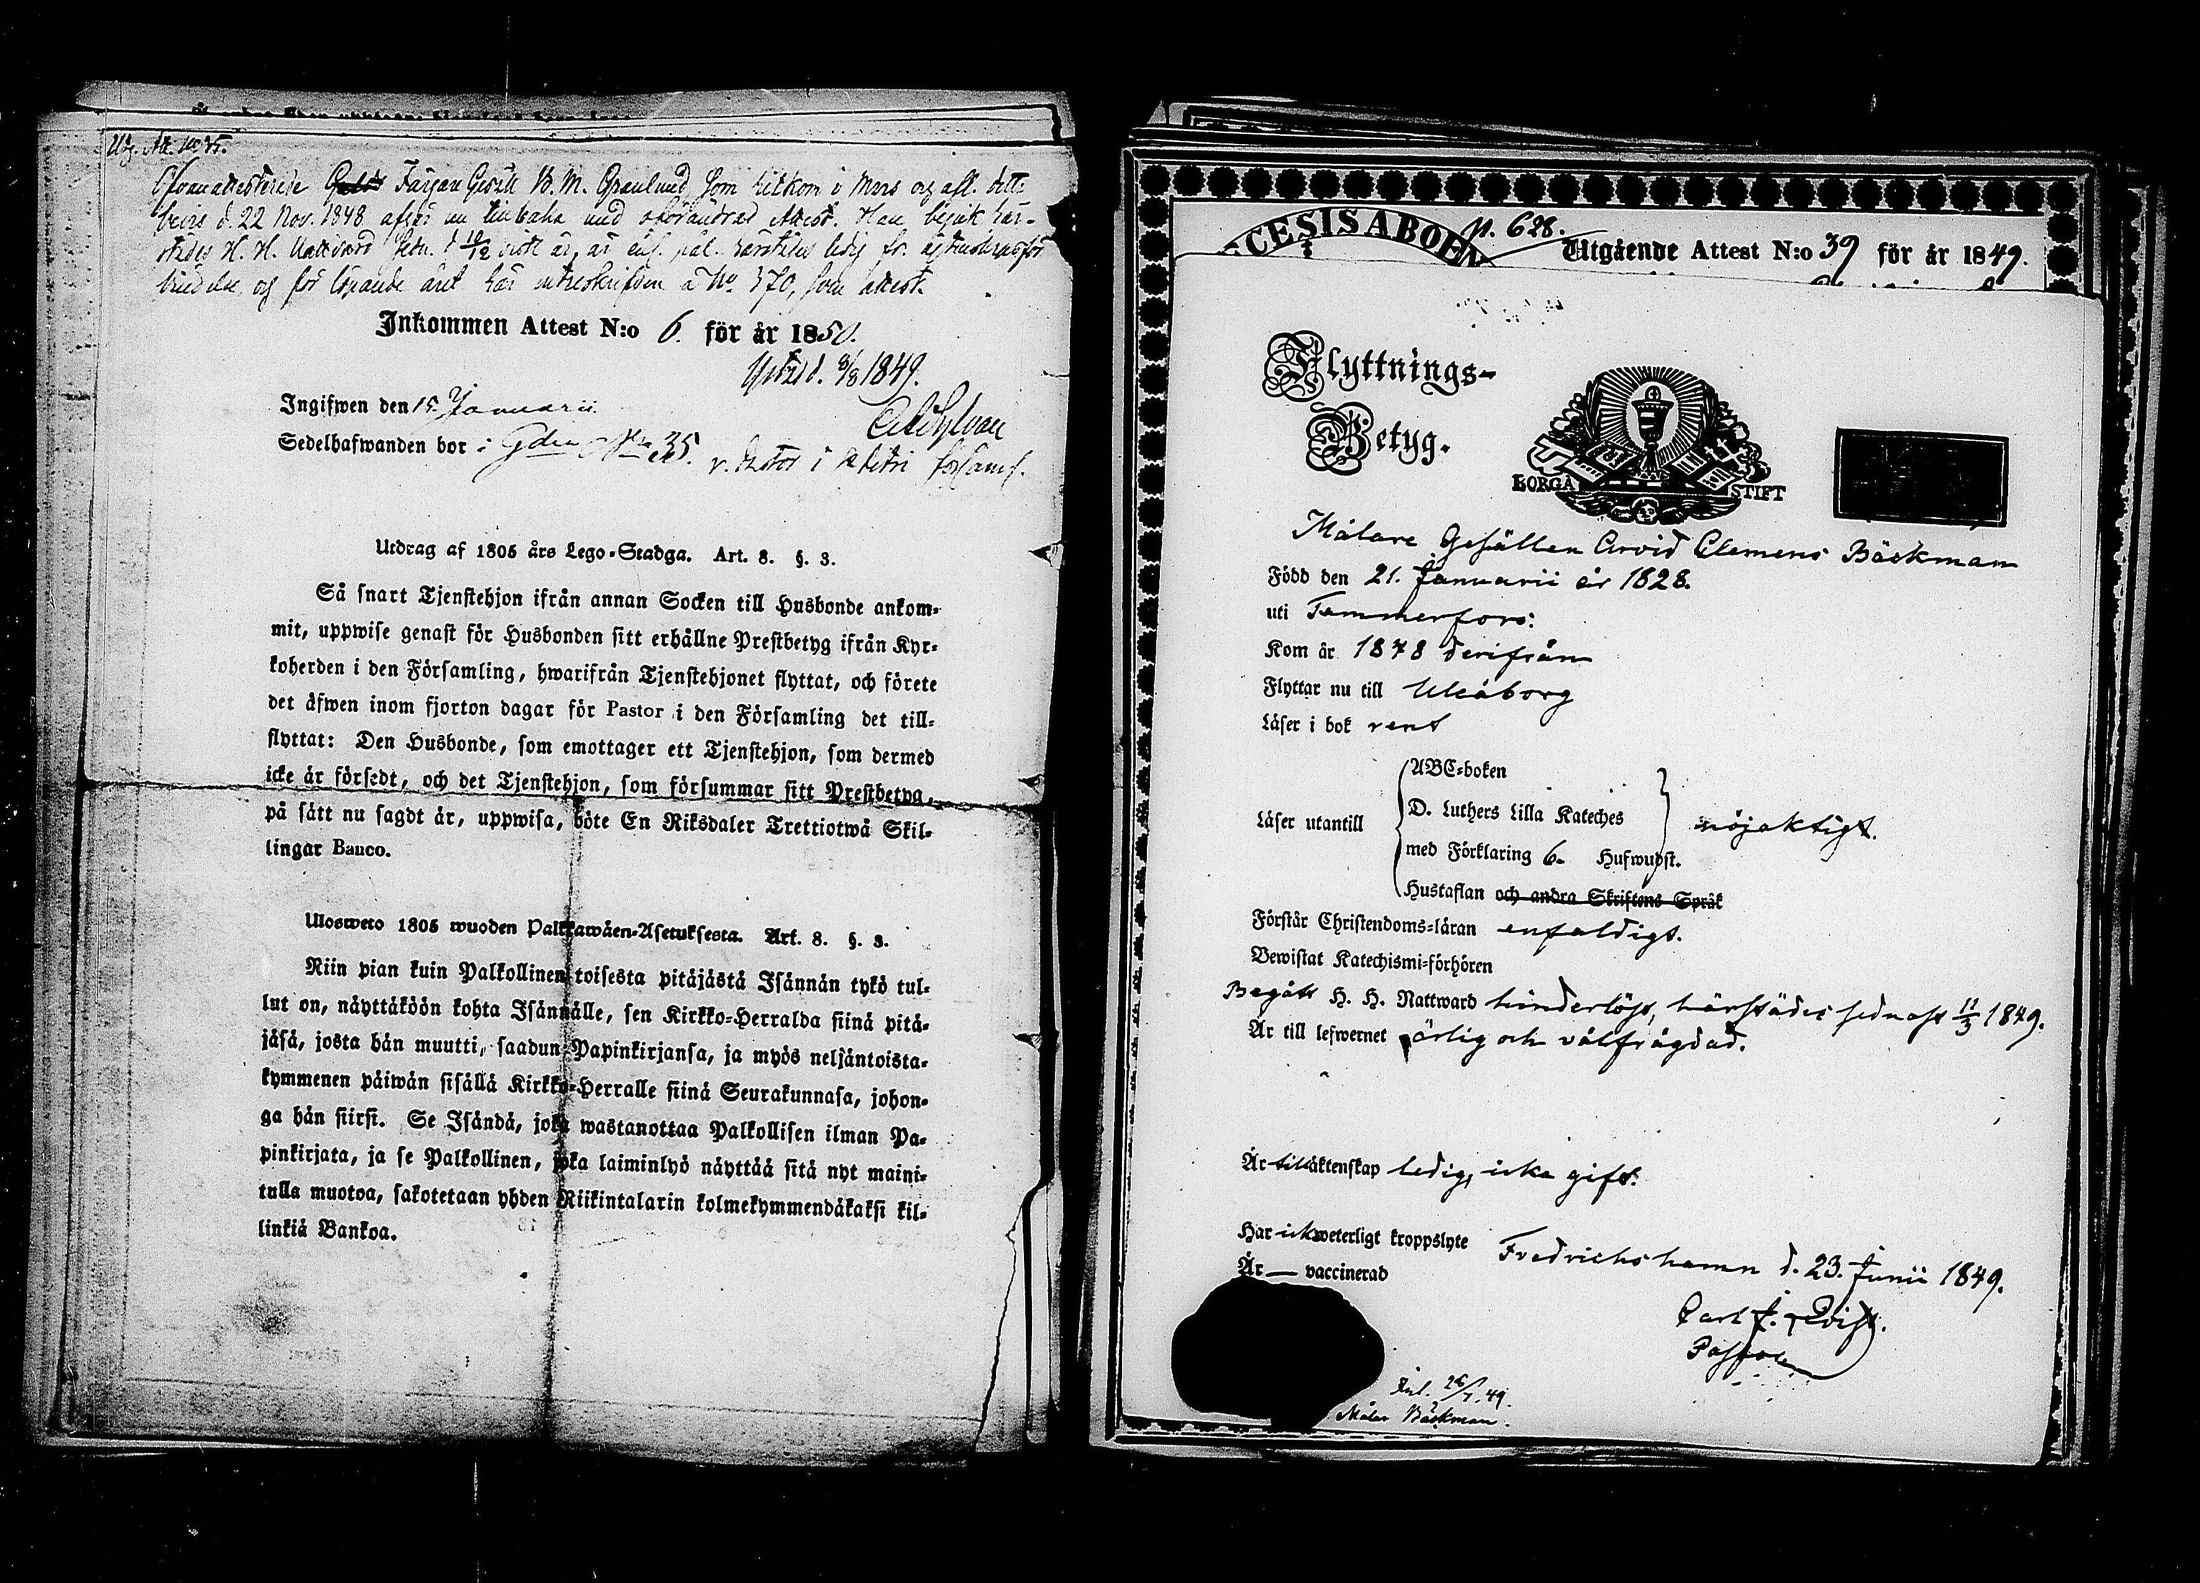 Utg. Att. No 35.
Ofvanattesterade Färgare Gesäll B. M. Granlund, som hitkom i Mars og afl. detta
d. 22 Nov. 1848 med oförändrad Attest. Han begick här-
städes H. H. Nattvard sedn. d. är härstädes ledig fr.
og för löpande året här mantalsskrifven å No 370, som attest.
Inkommen Attest N:o 6. för år 1850.
d. 8/8 1849.
Ingifwen den 15. Januarii
Sedelhafwanden bor i Gden No 35.
v. Pastor i Förсaml.
Utdrag af 1805 års Lego-Stadga. Art. 8. §. 3.
Så snart Tjenstehjon ifrån annan Socken till Husbonde ankom-
mit, uppwise genast för Husbonden sitt erhållne Prestbetyg ifrån Kyr-
koherden i den Församling, hwarifrån Tjenstehjonet flyttat, och förete
det äfwen inom fjorton dagar för Pastor i den Församling det till-
flyttat: Den Husbonde, som emottager ett Tjenstehjon, som dermed
icke är försedt, och det Tjenstehjon, som försummar sitt Prestbetyg,
på sätt nu sagdt är, uppwisa, böte En Riksdaler Trettiotwå Skil-
lingar Banco.
Ulosweto 1805 wuoden Palkkawäen-Asetuksesta. Art. 8. §. 3.
Niin pian kuin Palkollinen toisesta pitäjästä Isännän tykö tul-
lut on, näyttäköön kohta Isännälle, sen Kirkko-Herralda siinä pitä-
jäsä, josta hän muutti, saadun Papinkirjansa, ja myös neljäntoista-
kymmenen päiwän sisällä Kirkko-Herralle siinä Seurakunnasa, johon-
ga hän siirsi. Se Isändä, joka wastanottaa Palkollisen ilman Pa-
pinkirjata, ja se Palkollinen, joka laiminlyö näyttää sitä nyt maini-
tulla muotoa, sakotetaan yhden Riikintalarin kolmekymmendäkaksi kil-
linkiä Bankoa.
ECESIS ABOEN
p. 628.
Utgående Attest N:o 39 för år 1849.
Flyttnings-
Betyg.
BORGÅ STIFT
Målare Gesällen Arvid Clemens Bäckman
Född den 21. Januarii år 1828.
uti Tammerfors:
Kom år 1848 derifrån
Flyttar nu till Uleåborg
Läser i bok rent
Läser utantill
ABC-boken
D. Luthers Lilla Kateches
med Förklaring 6. Hufwudst.
Hustaflan och andra Skriftens Språk
nöjaktigt.
Förstår Christendoms-läran enfaldigt.
Bewistat Katechismi-förhören
Begått H. H. Nattward hinderlöst, härstädes sednast 11/3 1849.
Är till lefwernet ärlig och välfrägdad.
Är till äktenskap ledig, icke gift.
Har icke weterligt kroppslyte
Är — vaccinerad
Fredrichshamn d. 23. Junii 1849.
Carl J. Qvist.
Pastor
Inl. 26/7 49.
Målar Bäckman.